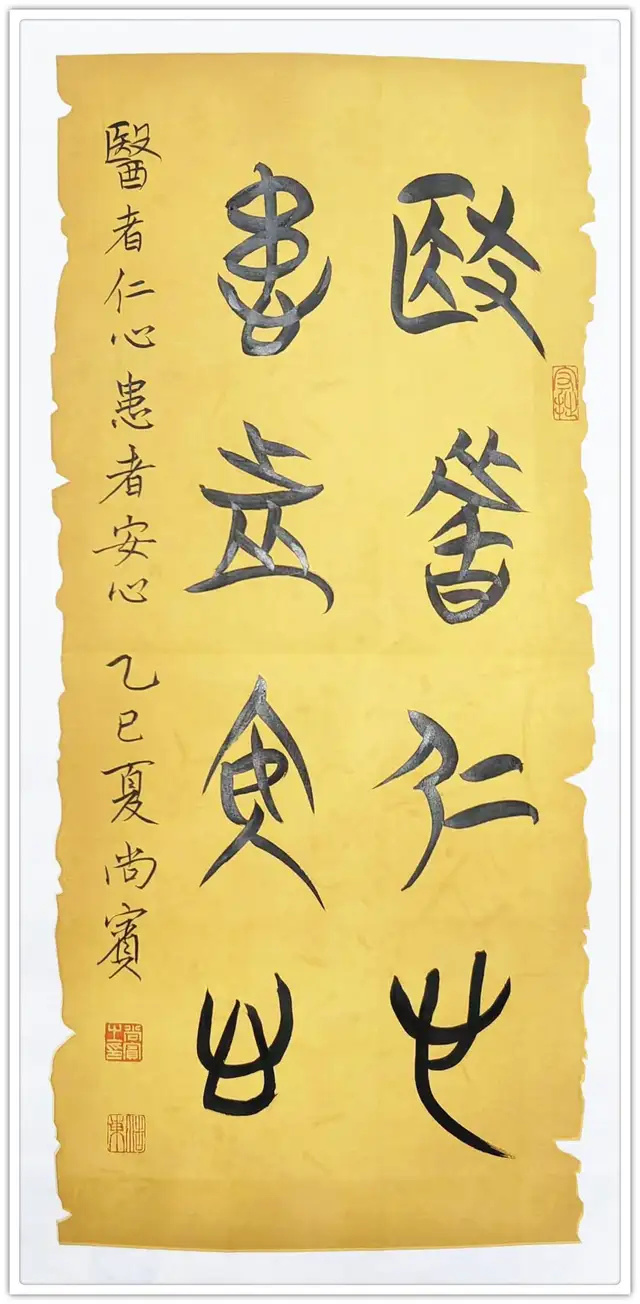 醫者仁心
患者安心
醫者仁心患者安心 乙巳夏尚賓
守拙